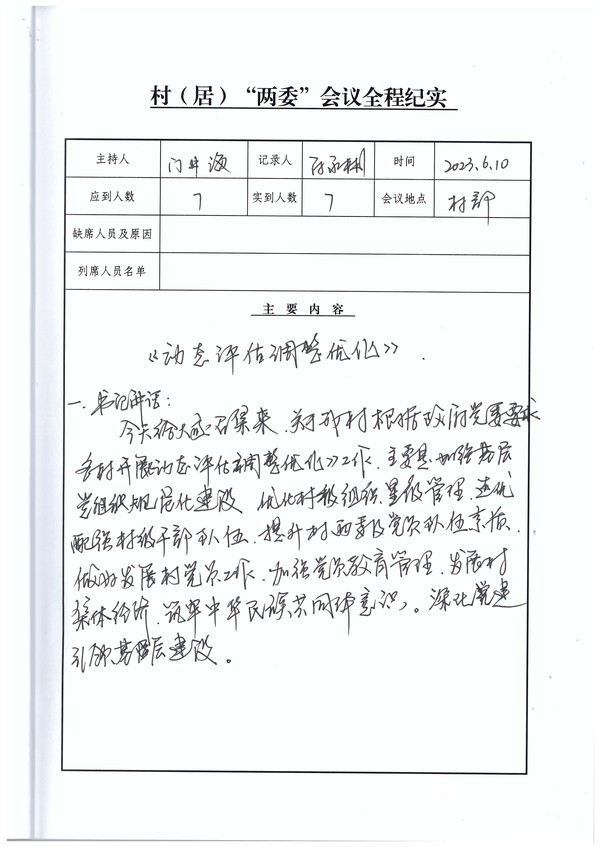 村（居）“两委”会议全程纪实
主持人 门 海 记录人 时间 2023.6.10
应到人数 7 实到人数 7 会议地点 村部
缺席人员及原因
列席人员名单
主要内容
《动态评估调整优化》.
一.书记讲话：
今天给大家召集来、关于我村根据政府党委要求
各村开展动态评估调整优化》工作、主要是加强基层
党组织规范化建设 优化村级组织星级管理、选优
配强村级干部队伍、提升村两委及党员队伍素质、
做好发展村党员工作、加强党员教育管理、发展村
集体经济、筑牢中华民族共同体意识，。深化党建
引领基层建设。